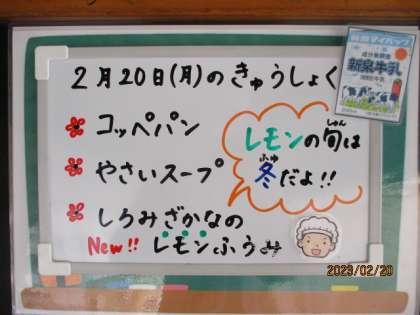 2月20日(月)のきゅうしょく
コッペパン
やさいスープ
しろみざかなの
New!! レモンふうみ
レモンの旬は
しゅん
冬だよ!!
ふゆ
新泉牛乳
2023/02/20